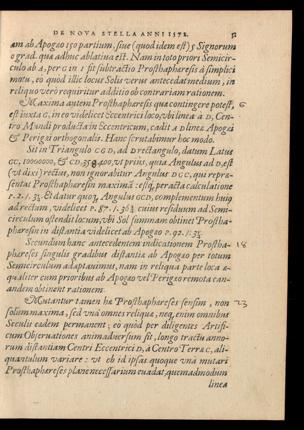 DE NOVA STELLA ANNI 1572. 52
am ab Apogeo 150 partium, siue (quod idem est) 5 Signorum
0 grad. qua adhuc ablatiua est. Nam in toto priori Semicir-
culo ab A, per G in I fit subtractio Prosthaphæresis à simplici
motu, eo quod illic locus Solis verus antecedat medium, in
reliquo verò requiritur additio ob contrariam rationem.
Maxima autem Prosthapheresis qua contingere potest, 6
est iuxta G, in eo videlicet Eccentrici loco, vbi linea à D, Cen-
tro Mundi producta in Eccentricum, cadit à linea Apogei
& Perigæi orthogonalis. Hanc scrutabimur hoc modo.
Sit in Triangulo GCD, ad D rectangulo, datum Latus
GC, 10000000, & CD 358400, vt prius, quia Angulus ad D, est
(vt dixi) rectus, non ignorabitur Angulus DGC, qui repræ-
sentat Prosthaphæresin maximã: estq, peracta calculatione
P. 2. 1. 35. Et datur quoq, Angulus GCD, complementum huiq
ad rectum, videlicet P. 87. 1. 36½ cuius residuum ad Semi-
circulum ostendit locum, vbi Sol summam obtinet Prostha-
phæresin in distantia videlicet ab Apogeo P. 92. 1. 35.
Secundum hanc antecedentem indicationem Prostha- 18
phæreses singulis gradibus distantiæ ab Apogeo per totum
Semicirculum adaptauimus, nam in reliqua parte loca æ-
qualiter cum prioribus ab Apogeo vel Perigæo remota ean-
andem obtinent rationem.
Mutantur tamen hæ Prosthaphæreses sensim, non 23
solum maxima, sed vnà omnes reliquæ, neq, enim omnibus
Seculis eædem permanent; eò quod per diligentes Artifi-
cum Obseruationes animaduersum sit, longo tractu anno-
rum distantiam Centri Eccentrici D, à Centro Terræ C, ali-
quantulum variare: vt eb id ipsas quoque vnà mutari
Prosthaphæreses plane necessarium euadat, quemadmodum
linea